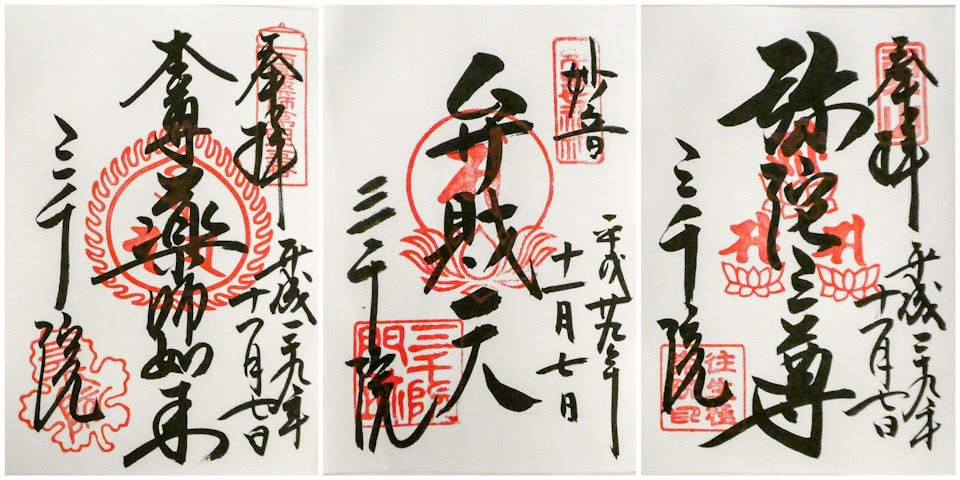 奉拝
平成二九年
十一月七日
本尊薬師如来
三千院
妙音
平成廿九年
十一月七日
弁財天
三千院
三千院
門跡
奉拝
平成二九年
十一月七日
弥陀三尊
三千院
往生極
楽院印